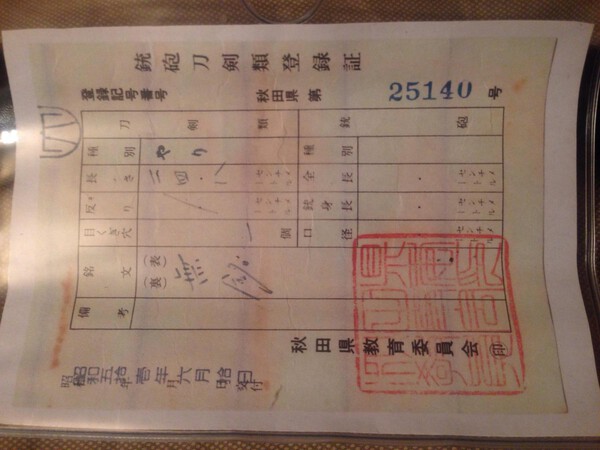 銃砲刀剣類登録証
登録記号番号 秋田県 第 25140 号
刀剣類 銃砲
種別 やり 種別
長さ 二四・八 センチメートル 全長 ・ センチメートル
反り センチメートル 銃身長 ・ センチメートル
目くぎ穴 一個 口径 ・ センチメートル
銘文 (表) 無
(裏)
備考
秋田県教育委員会 印
昭和五拾壱年六月拾
日付